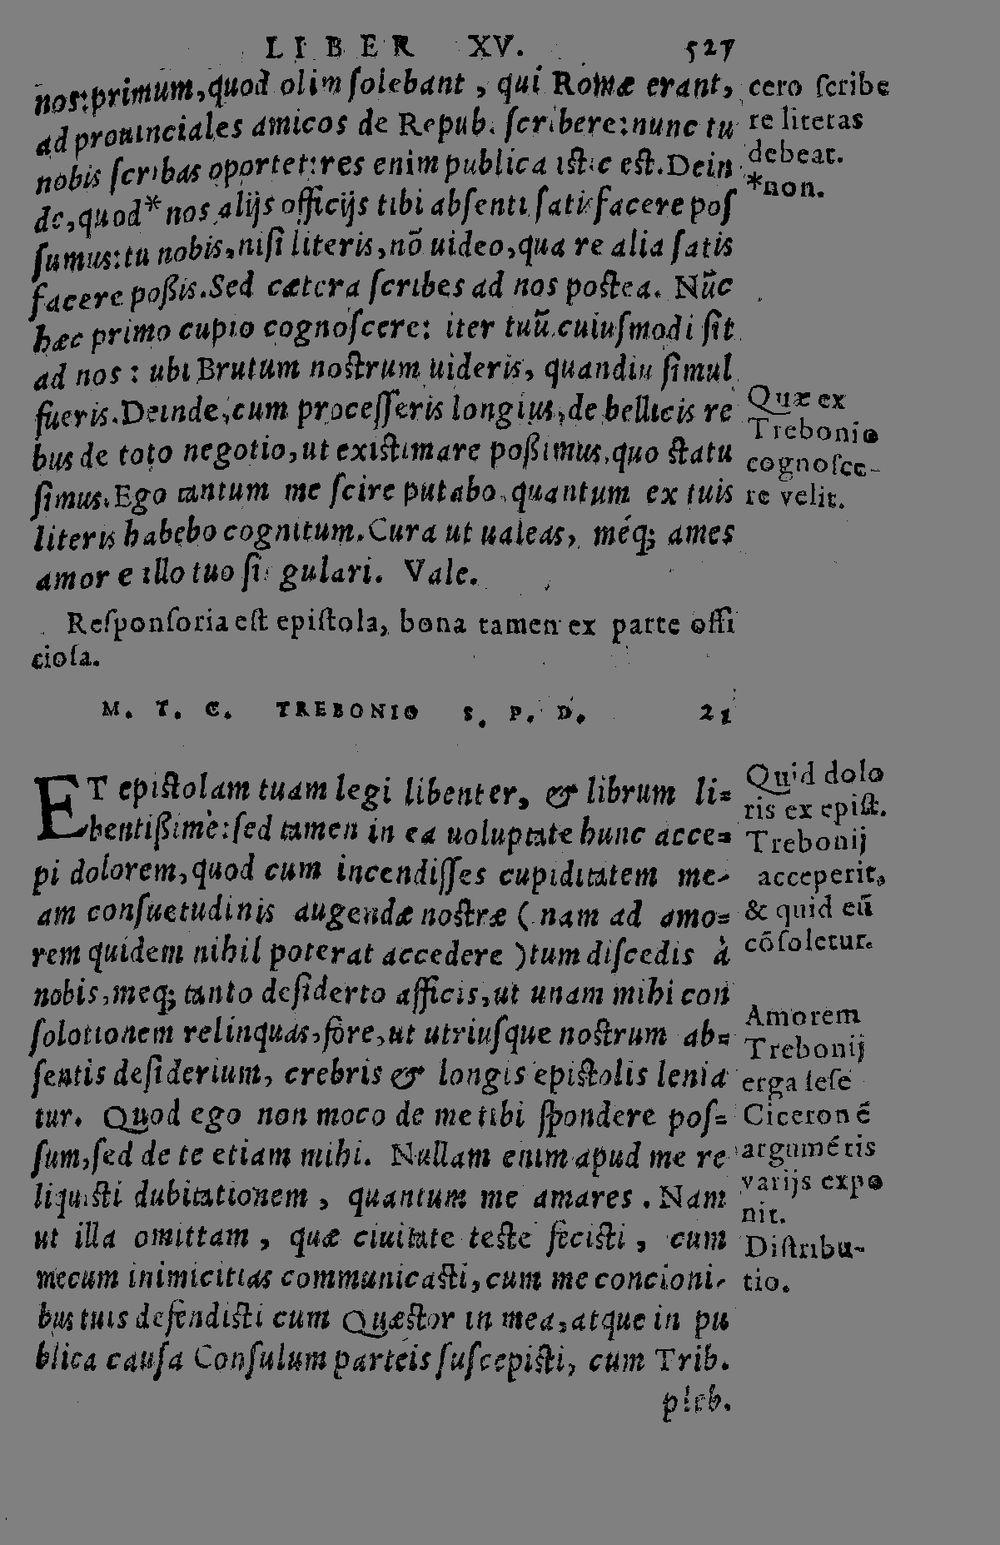 LIBER XV. 527
nos:primum,quod olim ſolebant , qui Romæ erant,
ad prouinciales amicos de Repub. ſcribere:nunc tu
nobis ſcribas oportet:res enim publica iſtic eſt.Dein
de,quod*nos alijs officijs tibi abſenti ſatisfacere poſ
ſumus:tu nobis,niſi literis,nõ uideo,qua re alia ſatis
facere poßis.Sed cætera ſcribes ad nos poſtea. Nũc
hæc primo cupio cognoſcere: iter tuũ cuiuſmodi ſit
ad nos : ubi Brutum noſtrum uideris, quandiu ſimul
fueris.Deinde,cum proceſſeris longius,de bellicis re
bus de toto negotio,ut exiſtimare poßimus,quo ſtatu
ſimus.Ego tantum me ſcire putabo,quantum ex tuis
literis habebo cognitum.Cura ut ualeas, méq; ames
amore illo tuo ſingulari. Vale.
Reſponſoria eſt epiſtola, bona tamen ex parte offi
cioſa.
cero ſcribe
re literas
debeat.
*non.
Quæ ex
Trebonio
cognoſce-
re velit.
M. T. C. TREBONIO S. P. D. 21
ET epiſtolam tuam legi libenter, & librum li=
bentißimè:ſed tamen in ea uoluptate hunc acce=
pi dolorem,quod cum incendiſſes cupiditatem me-
am conſuetudinis augendæ noſtræ ( nam ad amo=
rem quidem nihil poterat accedere )tum diſcedis à
nobis,meq; tanto deſiderto afficis,ut unam mihi con
ſolotionem relinquas,fore,ut utriuſque noſtrum ab=
ſentis deſiderium, crebris & longis epiſtolis lenia
tur. Quod ego non moco de me tibi ſpondere poſ=
ſum,ſed de te etiam mihi. Nullam enim apud me re
liquiſti dubitationem , quantum me amares . Nam
ut illa omittam , quæ ciuitate teſte feciſti , cum
mecum inimicitias communicaſti,cum me concioni-
bus tuis defendiſti cum Quæſtor in mea,atque in pu
blica cauſa Conſulum parteis ſuſcepiſti, cum Trib.
pleb.
Quid dolo
ris ex epiſt.
Trebonij
acceperit,
& quid eũ
cõſoletur.
Amorem
Trebonij
erga ſeſe
Ciceroné
argumétis
varijs expo
nit.
Diſtribu-
tio.